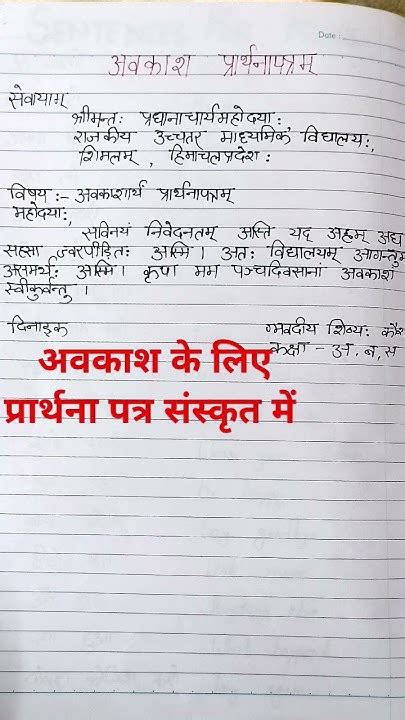 Date :
अवकाश प्रार्थनापत्रम्
सेवायाम्
श्रीमन्तः प्रधानाचार्यमहोदयाः
राजकीय उच्चतर माध्यमिक विद्यालयः,
शिमलम् , हिमाचलप्रदेशः
विषयः- अवकाशार्थ प्रार्थनापत्रम्
महोदयाः,
सविनयं निवेदनतम् अस्ति यद् अहम् अद्य
सहसा ज्वरपीड़ितः अस्मि। अतः विद्यालयम् आगन्तुम
असमर्थः अस्मि। कृपा मम पञ्चदिवसानां अवकाश
स्वीकुर्वन्तु ।
दिनाङ्क
भवदीय शिष्यः
कक्षा - अ, ब, स
अवकाश के लिए
प्रार्थना पत्र संस्कृत में